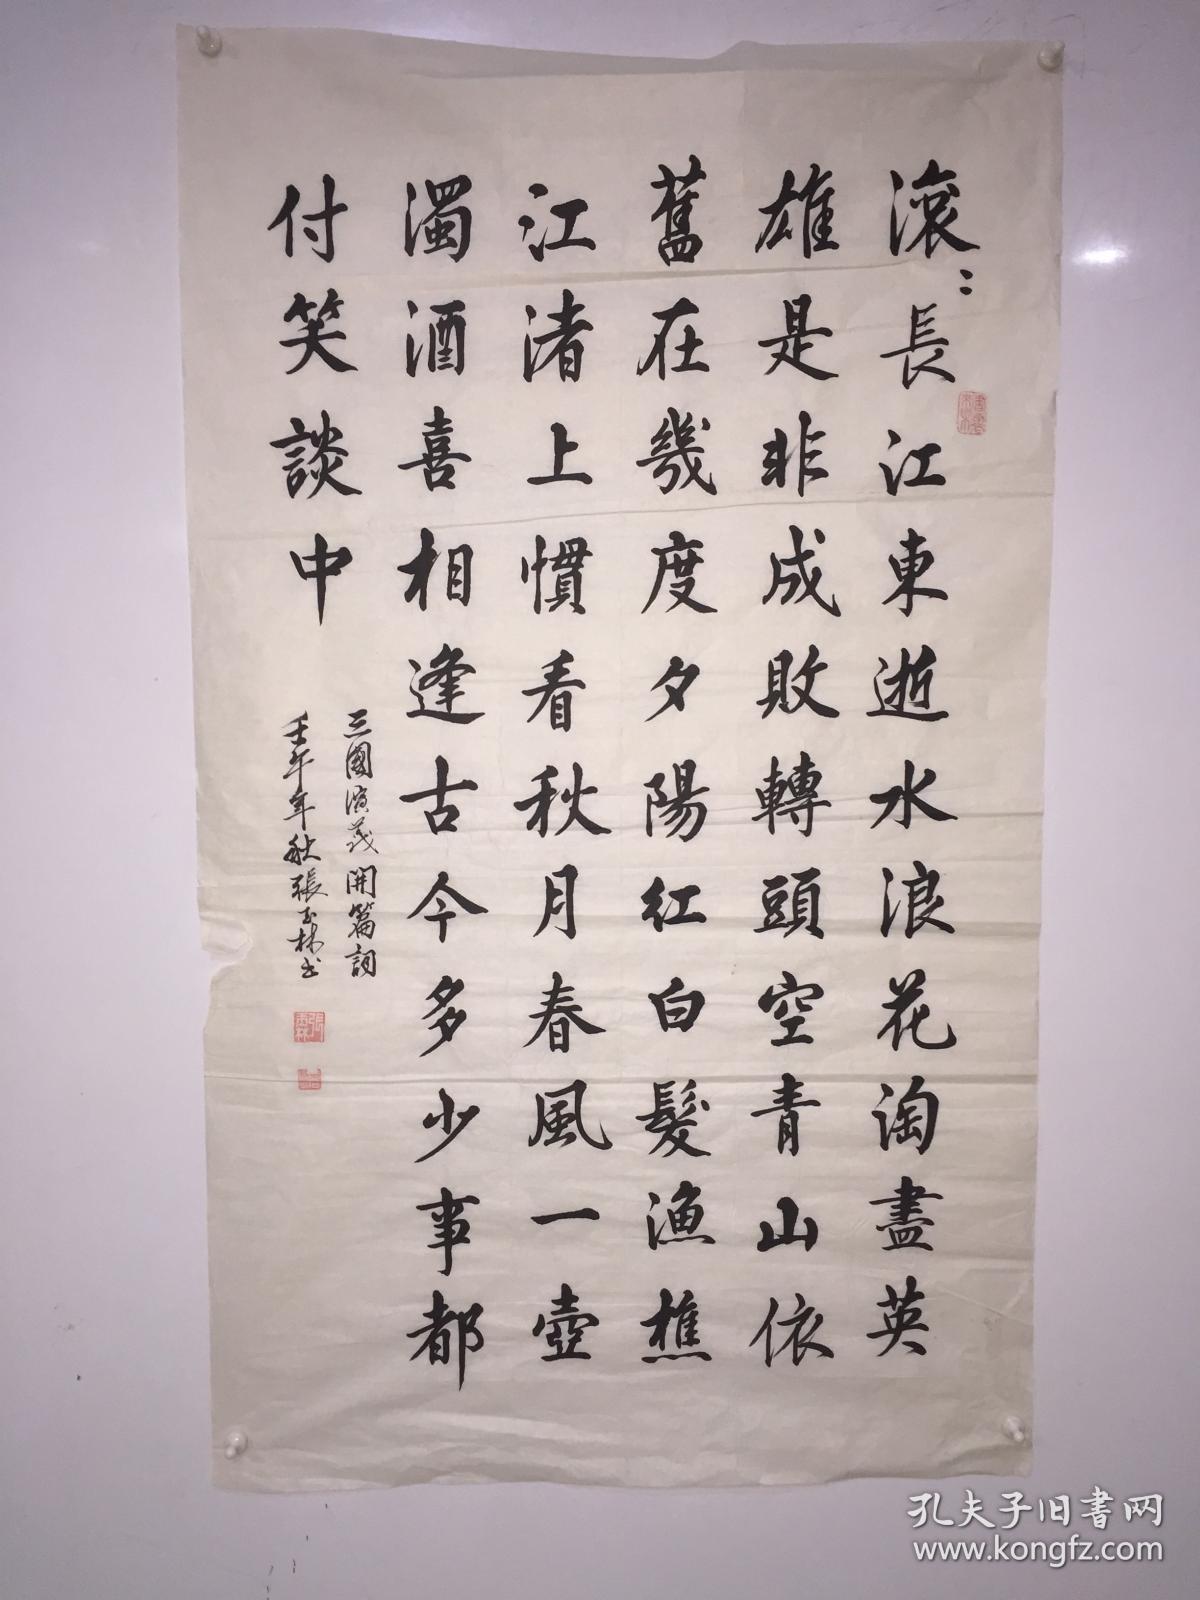 滾〻長江東逝水浪花淘盡英
雄是非成敗轉頭空青山依
舊在幾度夕陽紅白髮漁樵
江渚上慣看秋月春風一壺
濁酒喜相逢古今多少事都
付笑談中
三國演義開篇詞
壬午年秋張玉林书
孔夫子旧书网
www.kongfz.com